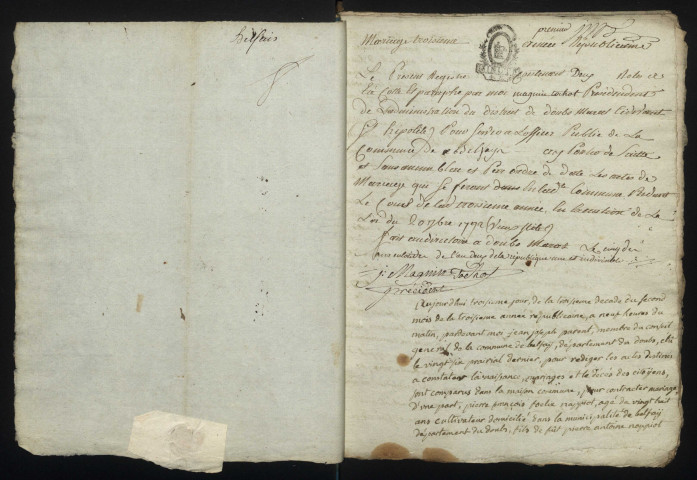 Belfais
premier
Mariage troisieme année Républicaine
Le Present Registre contenant Deux
Cotté et paraphé par moi maguin tochot President
de Ladministration du district de doubs Marat cidevant
hipolite) Pour servir a Lofficier Public de La
Commune de Belfays a y Porter de Suitte
et Sans aucun blanc et Par ordre de Date Les actes de
Mariage qui se feront dans la Commune Pendant
Le Cours de la troisieme année, En Execution de La
Loi du 20 7bre 1792 (vieux stile)
fait au directoire a doubs Marat Le cinq de
de l'an deux de la republique une et indivisible
J: Maguin Tochot
président
aujourdhui troisieme jour, de la troisieme decade du second
mois de la troisieme année républicaine, a neuf heures du
matin, pardevant moi jean joseph parent, membre du conseil
general de la commune de belfay, département du doubs, élu
le vingt six prairial dernier, pour rediger les actes destinés
a constater la naissance, mariages et le décès des citoyens,
sont comparus dans la maison commune, pour contracter mariage
d'une part, pierre françois nappiot, agé de vingt huit
ans cultivateur domicilié dans la municipalité de belfay
département du doubs, fils de fût pierre antoine nappiot